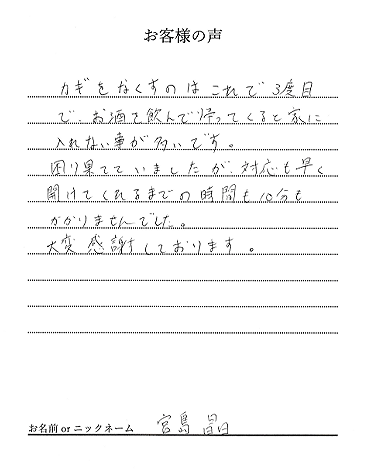 お客様の声
カギをなくすのはこれで3度目
で、お酒を飲んで帰ってくると家に
入れない事が多いです。
困り果てていましたが、対応も早く
開けてくれるまでの時間も10分も
かかりませんでした。
大変感謝しております。
お名前orニックネーム 宮島